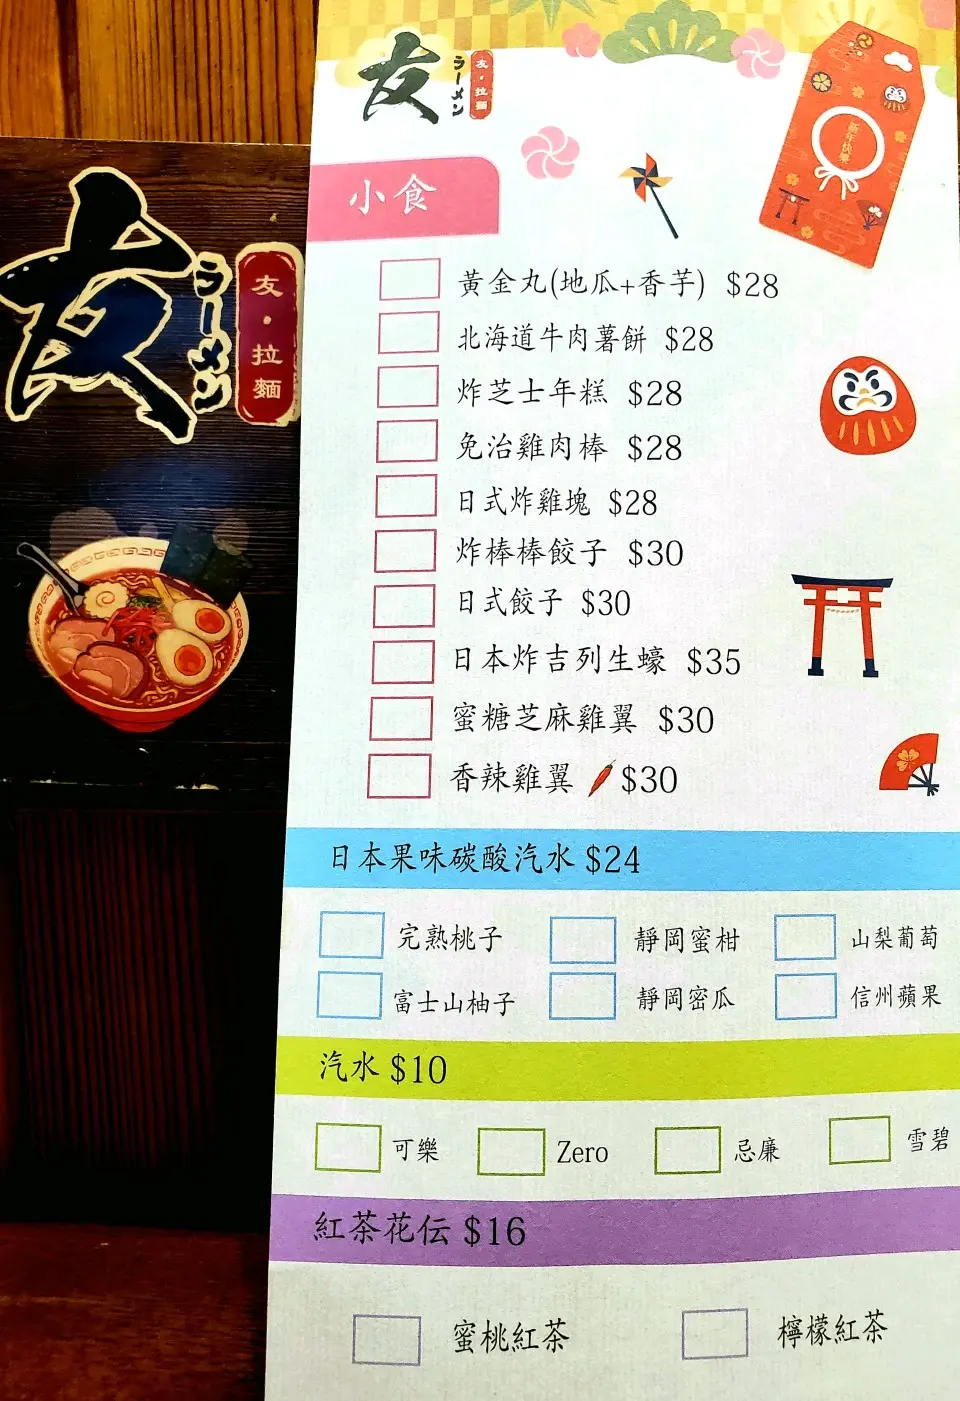 友
ラーメン
友・拉麵
友
ラーメン
友・拉麵
新年快樂
小食
黃金丸(地瓜+香芋) $28
北海道牛肉薯餅 $28
炸芝士年糕 $28
免治雞肉棒 $28
日式炸雞塊 $28
炸棒棒餃子 $30
日式餃子 $30
日本炸吉列生蠔 $35
蜜糖芝麻雞翼 $30
香辣雞翼 $30
日本果味碳酸汽水 $24
完熟桃子 靜岡蜜柑 山梨葡萄
富士山柚子 靜岡密瓜 信州蘋果
汽水 $10
可樂 Zero 忌廉 雪碧
紅茶花伝 $16
蜜桃紅茶 檸檬紅茶